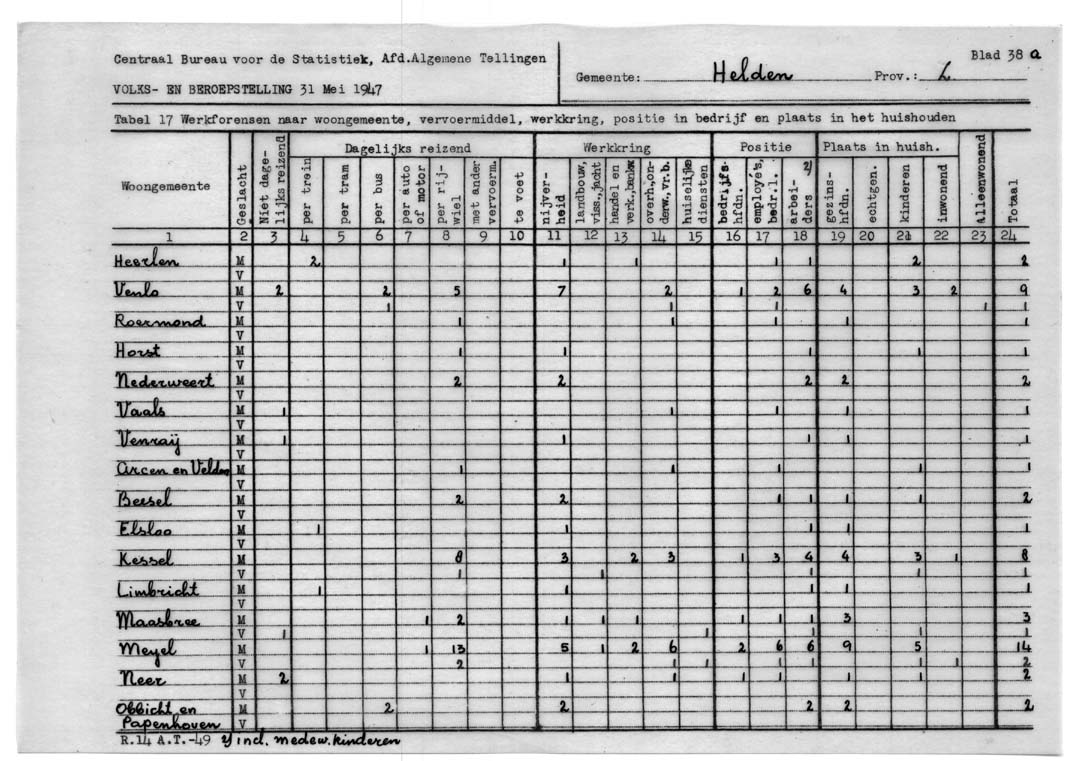 Centraal Bureau voor de Statistiek, Afd.Algemene Tellingen
Blad 38 a
Gemeente: Helden Prov.: L
VOLKS- EN BEROEPSTELLING 31 Mei 1947
Tabel 17 Werkforensen naar woongemeente, vervoermiddel, werkkring, positie in bedrijf en plaats in het huishouden
Woongemeente | Geslacht | Niet dage-lijks reizend | Dagelijks reizend: per trein | per tram | per bus | per auto of motor | per rij-wiel | met ander vervoerm. | te voet | Werkkring: nijver-heid | landbouw, viss.,jacht | handel en verk.,bankw | overh.,on-derw.,vr.b. | huiselijke diensten | Positie: bedrijfs-hfdn. | employé's, bedr.l. | arbei-ders 2) | Plaats in huish.: gezins-hfdn. | echtgen. | kinderen | inwonend | alleenwonend | Totaal
1 2 3 4 5 6 7 8 9 10 11 12 13 14 15 16 17 18 19 20 21 22 23 24
Heerlen M 2 1 1 1 1 2 2
V
Venlo M 2 2 5 7 2 1 2 6 4 3 2 9
V 1 1 1 1 1
Roermond M 1 1 1 1 1
V
Horst M 1 1 1 1 1
V
Nederweert M 2 2 2 2 2
V
Vaals M 1 1 1 1 1
V
Venraÿ M 1 1 1 1 1
V
Arcen en Velden M 1 1 1 1 1
V
Beesel M 2 2 1 1 1 1 2
V
Elsloo M 1 1 1 1 1
V
Kessel M 8 3 2 3 1 3 4 4 3 1 8
V 1 1 1 1 1
Limbricht M 1 1 1 1 1
V
Maasbree M 1 2 1 1 1 1 1 1 3 3
V 1 1 1 1 1
Meyel M 1 13 5 1 2 6 2 6 6 9 5 14
V 2 1 1 1 1 1 1 2
Neer M 2 1 1 1 1 1 1 2
V
Obbicht en M 2 2 2 2 2
Papenhoven V
R.14 A.T.-49 2) incl. medew. kinderen